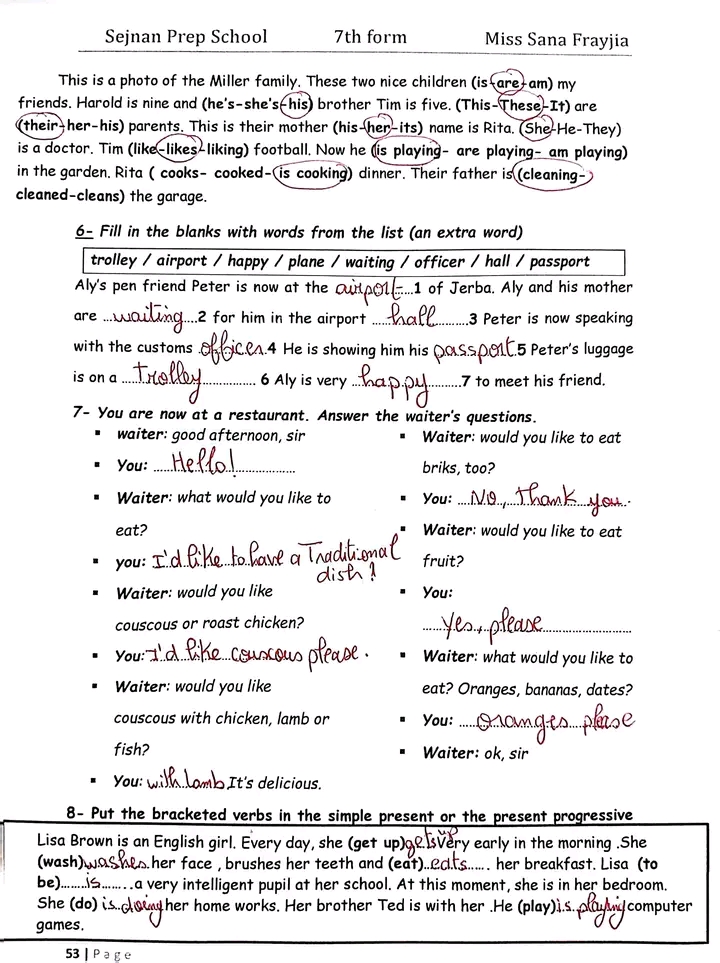 Sejnan Prep School 7th form Miss Sana Frayjia
This is a photo of the Miller family. These two nice children (is-are-am) my
friends. Harold is nine and (he's-she's-his) brother Tim is five. (This-These-It) are
(their-her-his) parents. This is their mother (his-her-its) name is Rita. (She-He-They)
is a doctor. Tim (like-likes-liking) football. Now he (is playing- are playing- am playing)
in the garden. Rita ( cooks- cooked- is cooking) dinner. Their father is (cleaning-
cleaned-cleans) the garage.
6- Fill in the blanks with words from the list (an extra word)
trolley / airport / happy / plane / waiting / officer / hall / passport
Aly's pen friend Peter is now at the airport....1 of Jerba. Aly and his mother
are ...waiting....2 for him in the airport .....hall..........3 Peter is now speaking
with the customs .officer.4 He is showing him his passport.5 Peter's luggage
is on a ....Trolley............... 6 Aly is very ...happy..........7 to meet his friend.
7- You are now at a restaurant. Answer the waiter's questions.
▪ waiter: good afternoon, sir
▪ You: .....Hello!.................
▪ Waiter: what would you like to
eat?
▪ you: I'd like to have a Traditional
dish!
▪ Waiter: would you like
couscous or roast chicken?
▪ You: I'd like couscous please.
▪ Waiter: would you like
couscous with chicken, lamb or
fish?
▪ You: with lamb It's delicious.
▪ Waiter: would you like to eat
briks, too?
▪ You: ....No, thank you.
▪ Waiter: would you like to eat
fruit?
▪ You:
.....Yes, please............................
▪ Waiter: what would you like to
eat? Oranges, bananas, dates?
▪ You: .....oranges please
▪ Waiter: ok, sir
8- Put the bracketed verbs in the simple present or the present progressive
Lisa Brown is an English girl. Every day, she (get up)gets up very early in the morning .She
(wash)washes her face , brushes her teeth and (eat)..eats...... her breakfast. Lisa (to
be)........is........a very intelligent pupil at her school. At this moment, she is in her bedroom.
She (do) is doing her home works. Her brother Ted is with her .He (play)is playing computer
games.
53 | Page